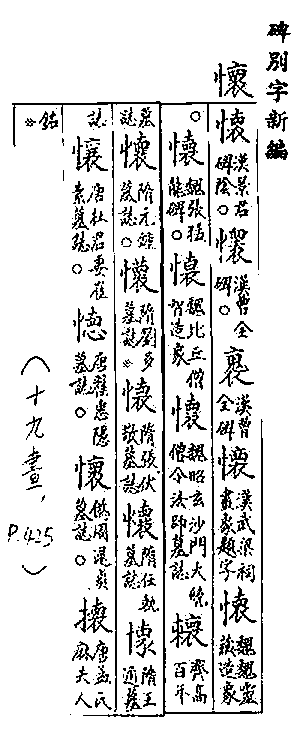 碑別字新編
懷
懷漢景君碑陰。懷漢曹全碑。褱漢曹全碑懷漢武梁祠畫象題字懷魏魏靈藏造象
。懷魏張猛龍碑。懷魏比丘僧智造象懷魏昭玄沙門大統僧令法師墓誌懷齊高百年
墓誌懷隋元鍾墓誌。懷隋劉多墓誌※懷隋張伏敬墓誌懷隋任軌墓誌懷隋王通墓
誌懷唐杜君妻崔素墓誌。懷唐惠隱墓誌。懷偽周墓誌。懷唐孟氏麻夫人
銘※
(十九畫, P.425)